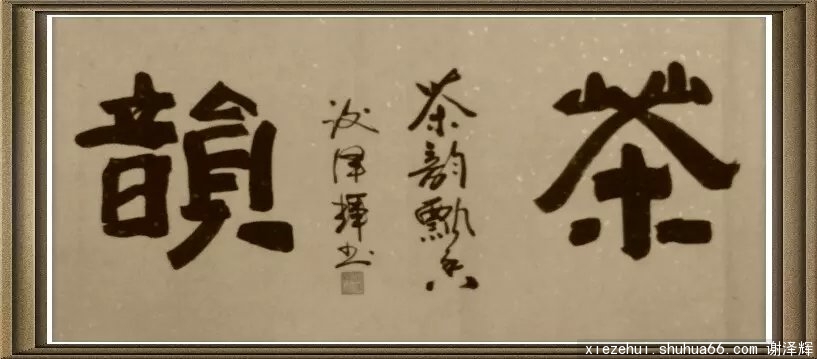 茶韻
茶韵飘香
谢泽輝书
xiezehui.shuhua66.com 谢泽辉